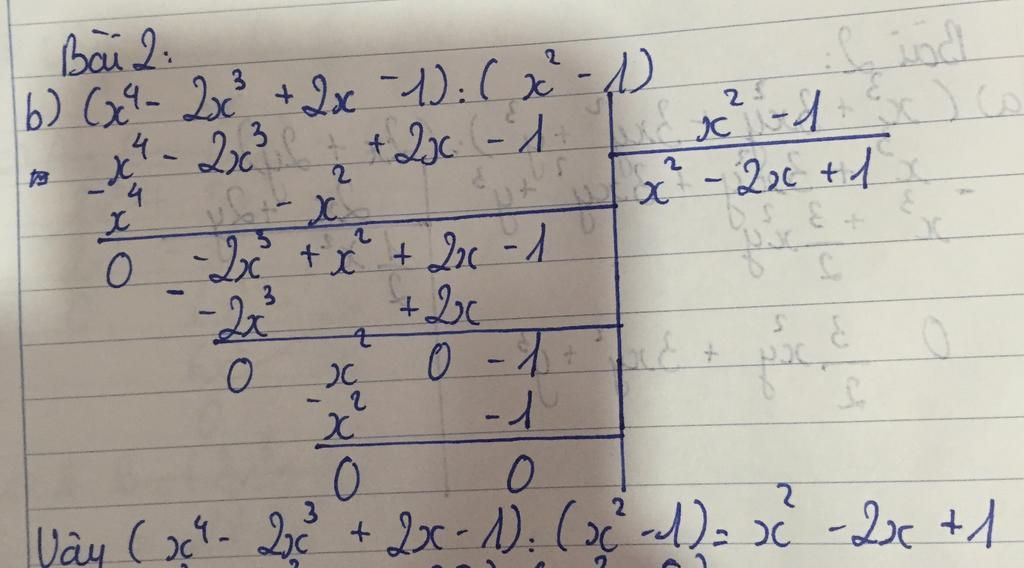 Bài 2:
b) (x⁴ - 2x³ + 2x - 1) : (x² - 1)
x⁴ - 2x³ + 2x - 1 | x² - 1
- x⁴ - x² | x² - 2x + 1
0 - 2x³ + x² + 2x - 1
- - 2x³ + 2x
0 x² 0 - 1
- x² - 1
0 0
Vậy (x⁴ - 2x³ + 2x - 1) : (x² - 1) = x² - 2x + 1